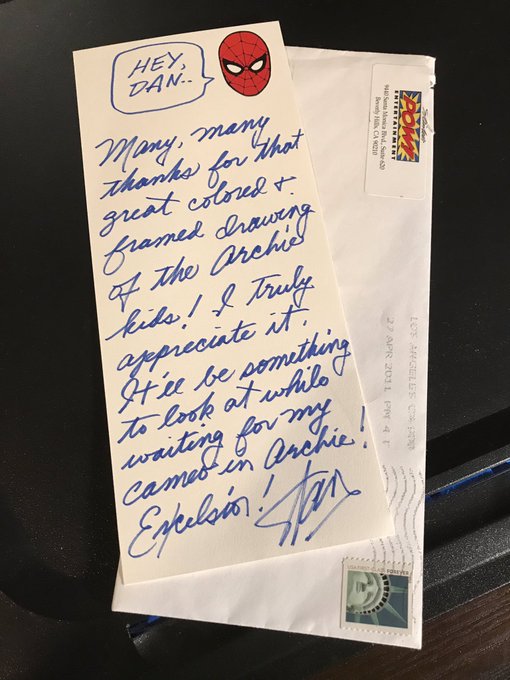 HEY,
DAN..
Many, many
thanks for that
great colored &
framed drawing
of the Archie
kids! I truly
appreciate it.
It'll be something
to look at while
waiting for my
cameo in Archie!
Excelsior!
Stan
POW!
ENTERTAINMENT
9440 Santa Monica Blvd., Suite 620
Beverly Hills, CA 90210
LOS ANGELES CA
27 APR 2011 PM 4
USA FIRST-CLASS FOREVER